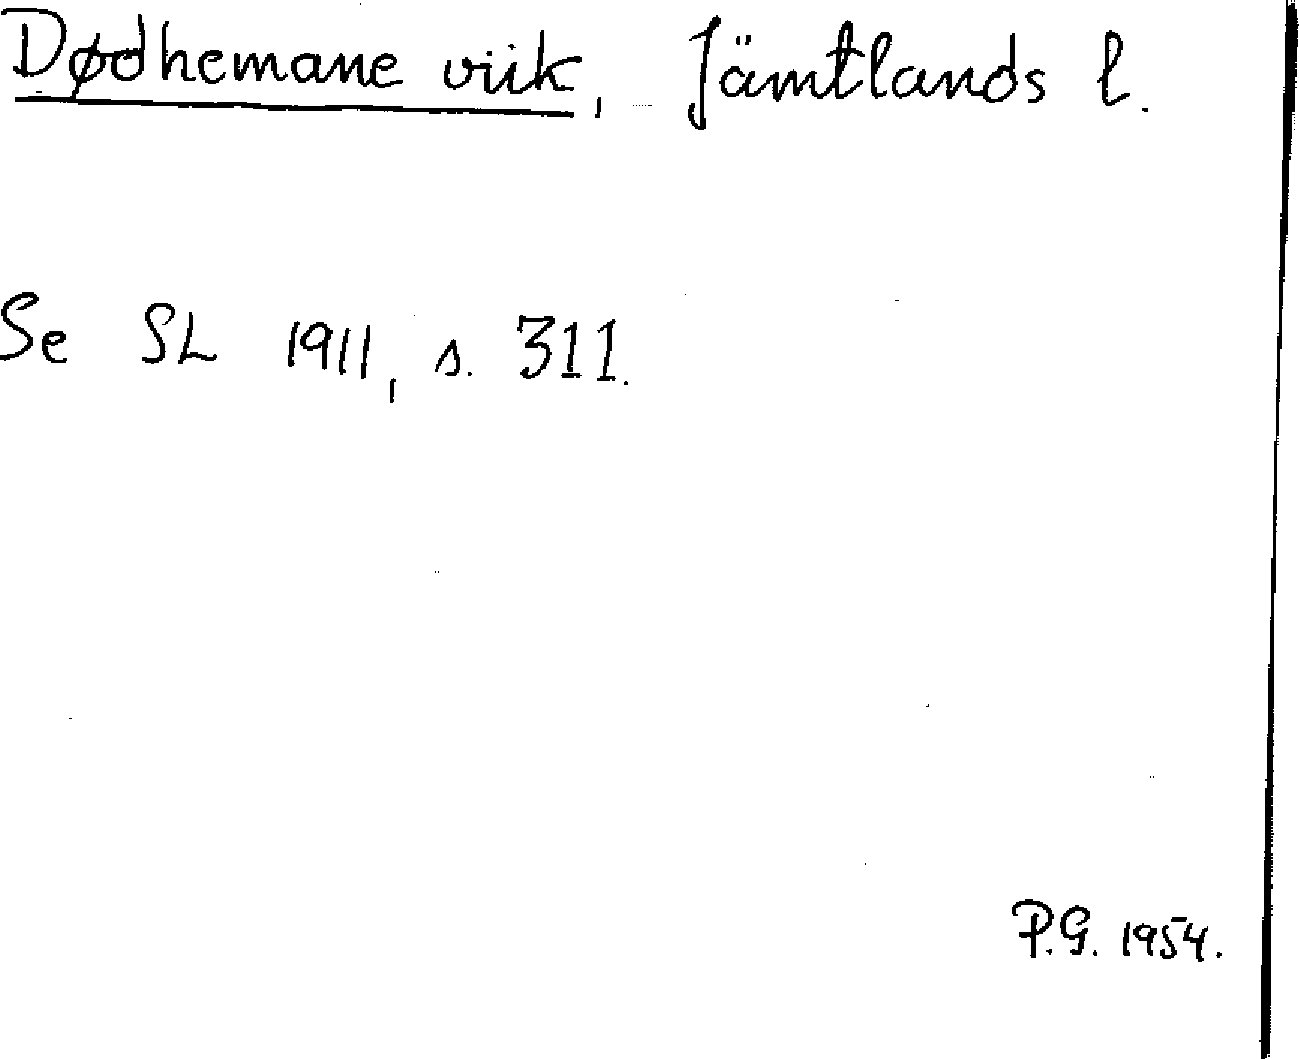 Dødhemane viik, Jämtlands l.
Se SL 1911, s. 311.
P.G. 1954.